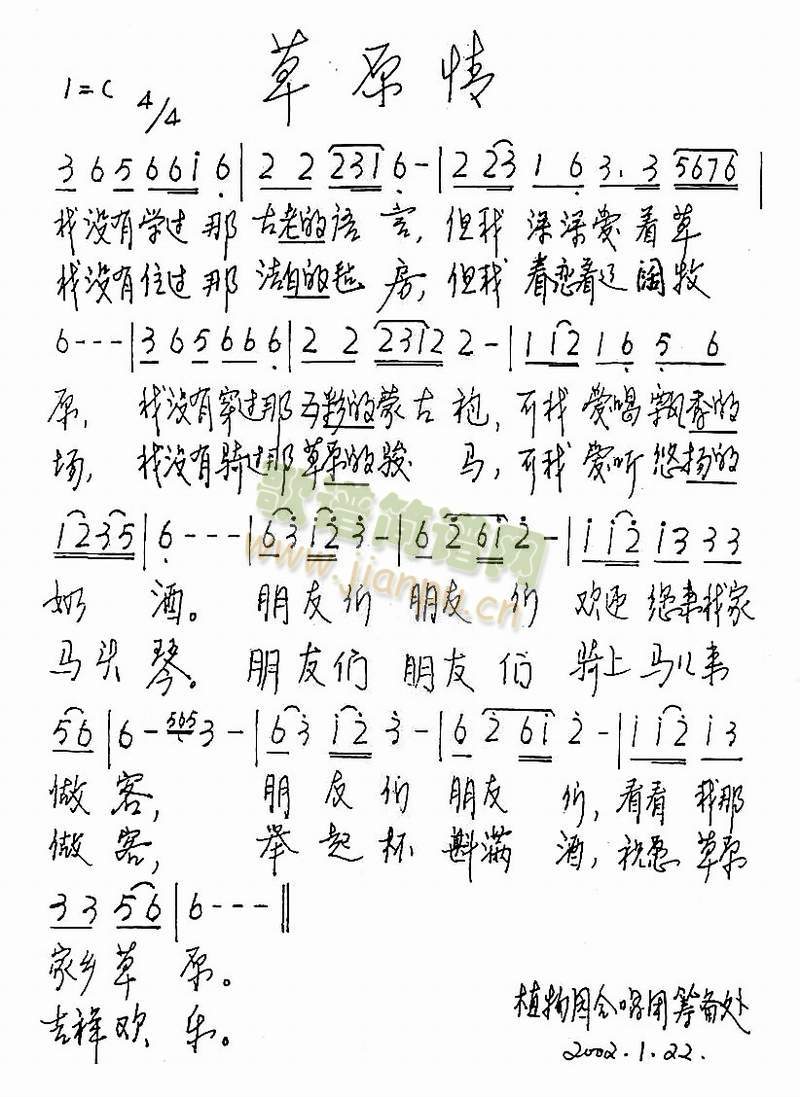 草原情
1=C 4/4
3 6 5 6 6 i 6 | 2 2 2 3 1 6 - | 2 2 3 1 6 3. 3 5 6 7 6 |
我没有学过那古老的语言,但我深深爱着草
我没有住过那洁白的毡房,但我眷恋着辽阔牧
6 - - - | 3 6 5 6 6 6 | 2 2 2 3 1 2 2 - | 1 1 2 1 6 5 6
原,我没有穿过那五彩的蒙古袍,可我爱喝飘香的
场,我没有骑过那草原的骏马,可我爱听悠扬的
1 2 3 5 | 6 - - - | 6 3 i 2 3 - | 6 2 6 i 2 - | i i 2 i 3 3 3
歌谱简谱网
www.jianpu.cn
奶酒。朋友们朋友们欢迎您来我家
马头琴。朋友们朋友们骑上马儿来
5 6 | 6 - 5 6 5 3 - | 6 3 i 2 3 - | 6 2 6 i 2 - | i i 2 i 3
做客,朋友们朋友们,看看我那
做客,举起杯斟满酒,祝愿草原
3 3 5 6 | 6 - - - ‖
家乡草原。
吉祥欢乐。
植物园合唱团筹备处
2002.1.22.